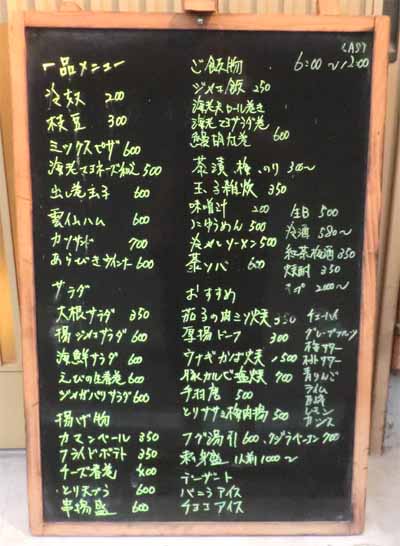 一品メニュー
冷奴 200
枝豆 300
ミックスピザ 600
海老マヨネーズ和え 500
出し巻玉子 600
雲仙ハム 600
カツサンド 700
あらびきウィンナー 600
サラダ
大根サラダ 350
揚ジャコサラダ 600
海鮮サラダ 600
えびの生春巻 600
ジャガバリサラダ 600
揚げ物
カマンベール 350
フライドポテト 350
チーズ春巻 400
とり天ぷら 600
串揚盛 600
ご飯物 6:00〜12:00
ジャコ飯 250
海老天ロール巻き
海老マヨサラダ巻
鰻胡瓜巻 600
茶漬 梅、のり 300〜
玉子雑炊 350
味噌汁 200
にゅうめん 500
冷やしソーメン 500
茶ソバ 600
生B 500
冷酒 580〜
紅茶梅酒 350
焼酎 350
2000〜
おすすめ
茄子の肉ミソ焼 350
厚揚ドーフ 300
ウナギかば焼 1500
豚カルビ塩焼 700
手羽唐 500
とりササミ梅肉揚 500
フグ湯引 600、クジラベーコン 700
刺身盛 1人前 1000〜
デザート
バニラアイス
チョコアイス
チューハイ
グレープフルーツ
梅サワー
青りんご
ライム
巨峰
レモン
カシス